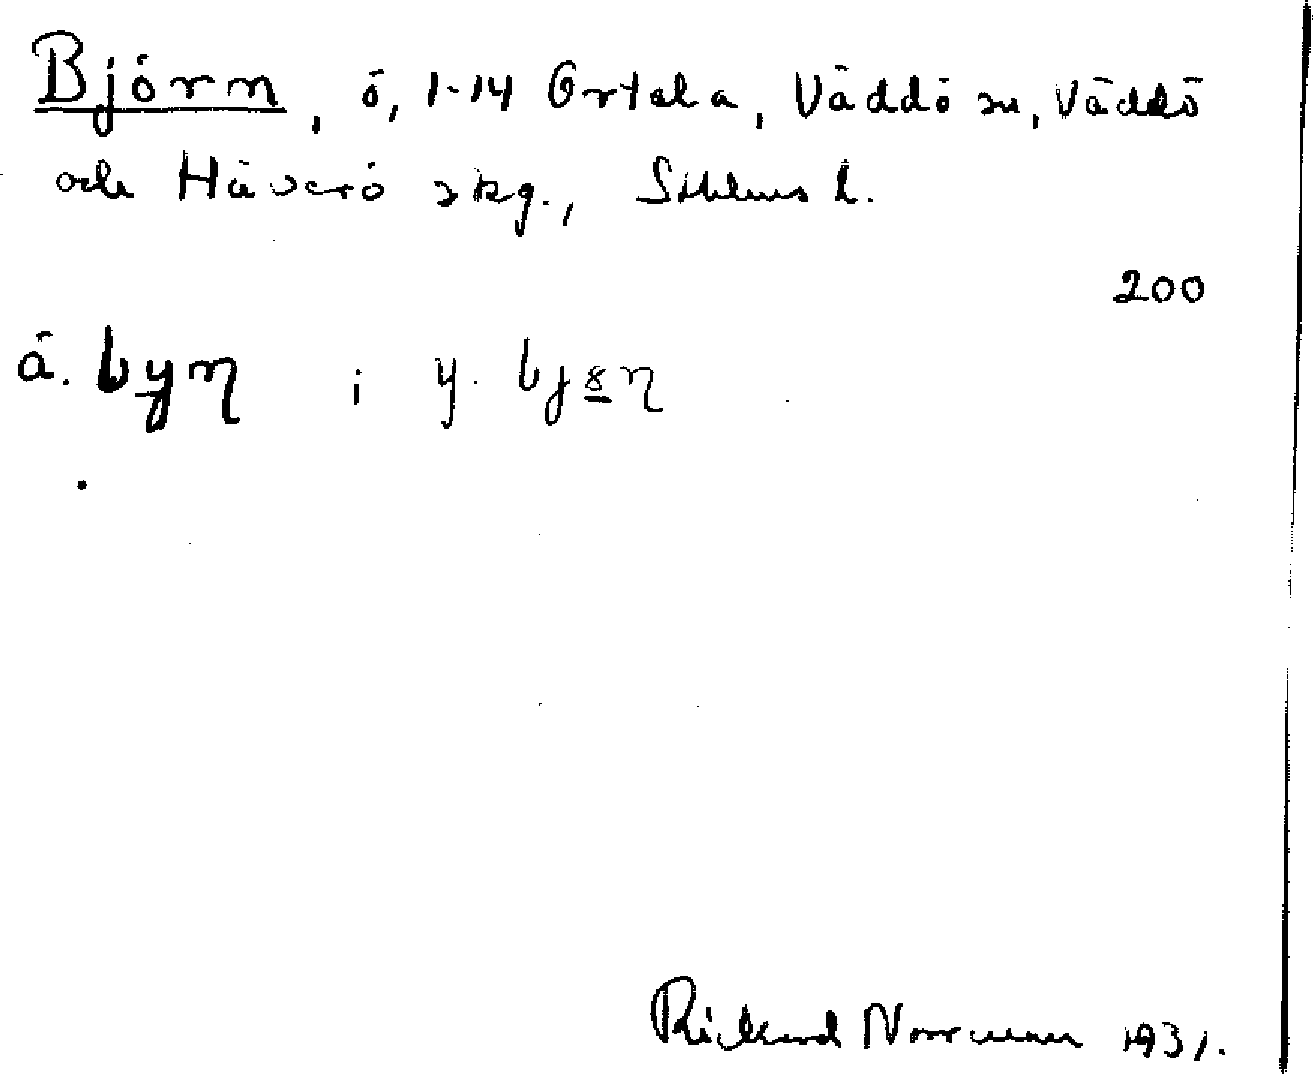 Björn, ö, 1-14 Ortala, Väddö sn, Väddö
och Häverö skg., Sthlms l.
200
ä. byn i y.
Rickard Norrman 1931.